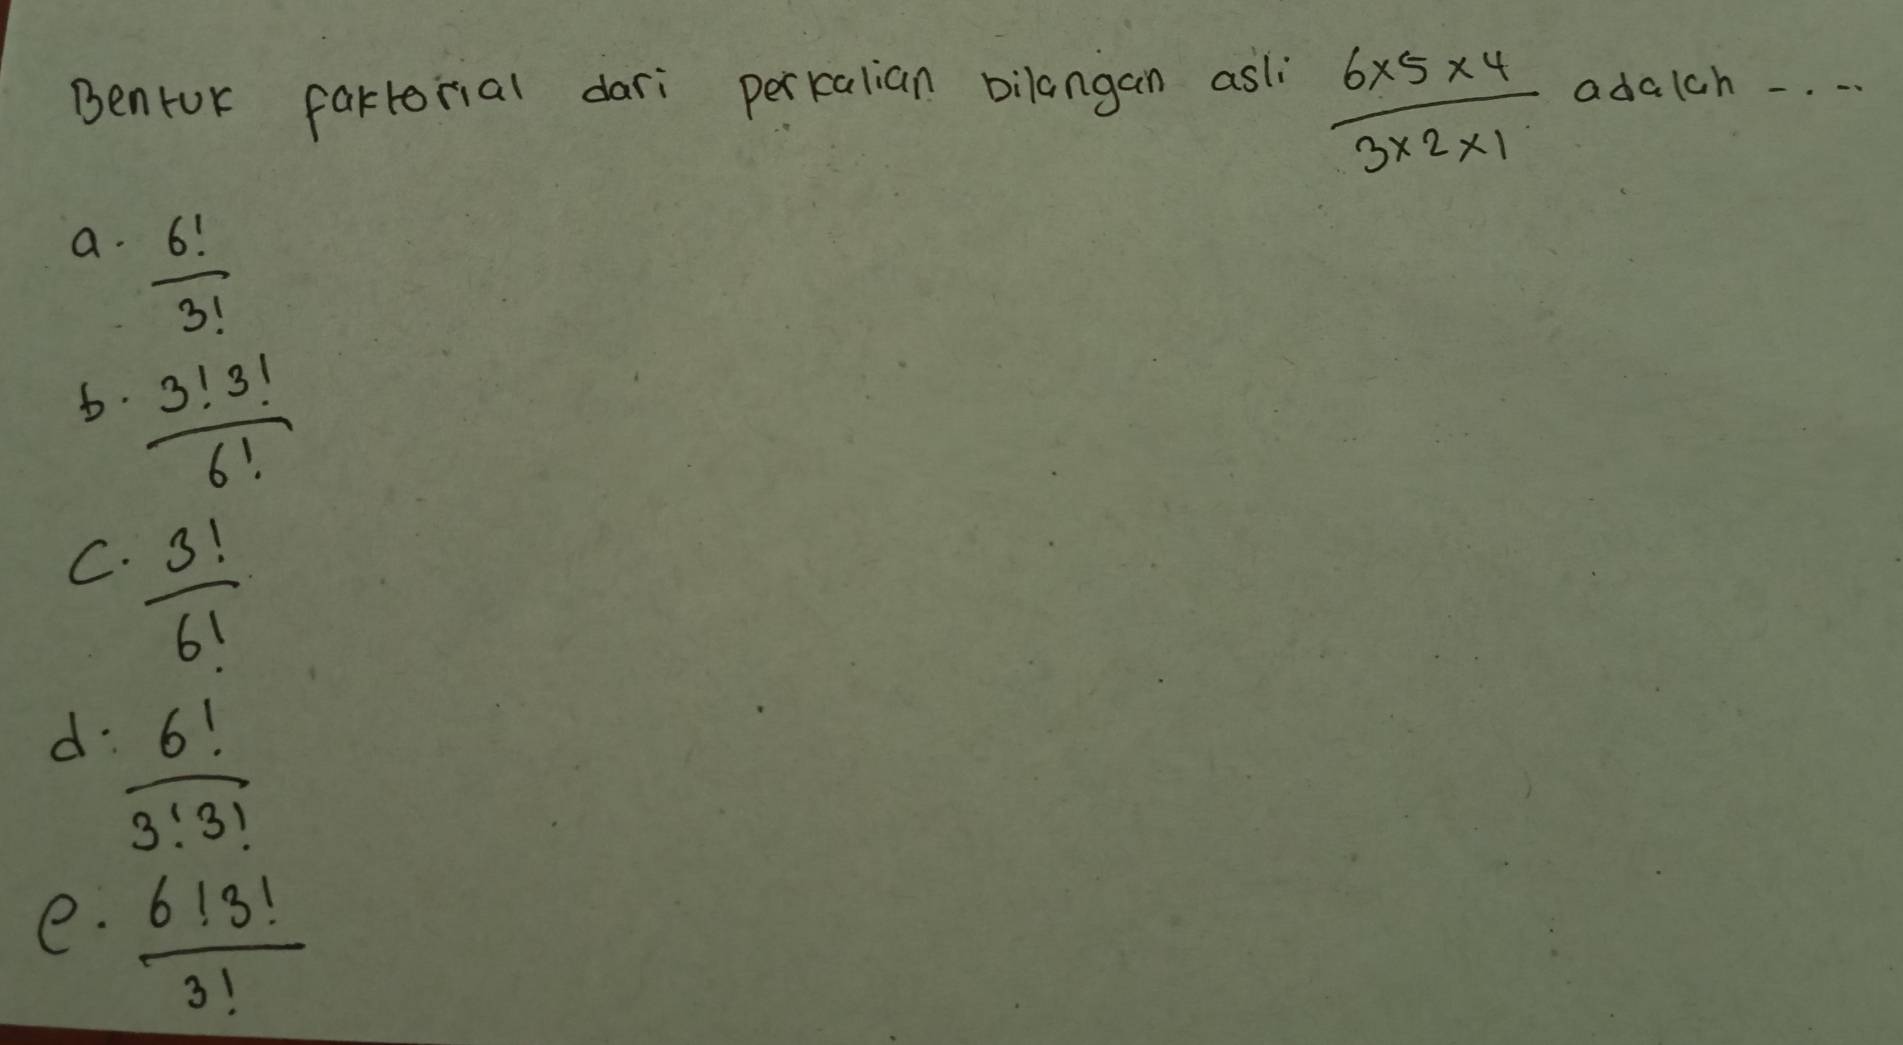 Bentuk faktorial dari perkalian bilangan asli 6x5x4 adalah -...
3x2x1
a. 6!
3!
b. 3!3!
6!
c. 3!
6!
d. 6!
3!3!
e. 6!3!
3!